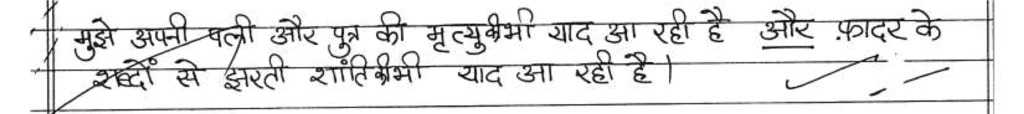 मुझे अपनी पत्नी और पुत्र की मृत्यु की भी याद आ रही है और फ़ादर के
शब्दों से झरती शांति की भी याद आ रही है।